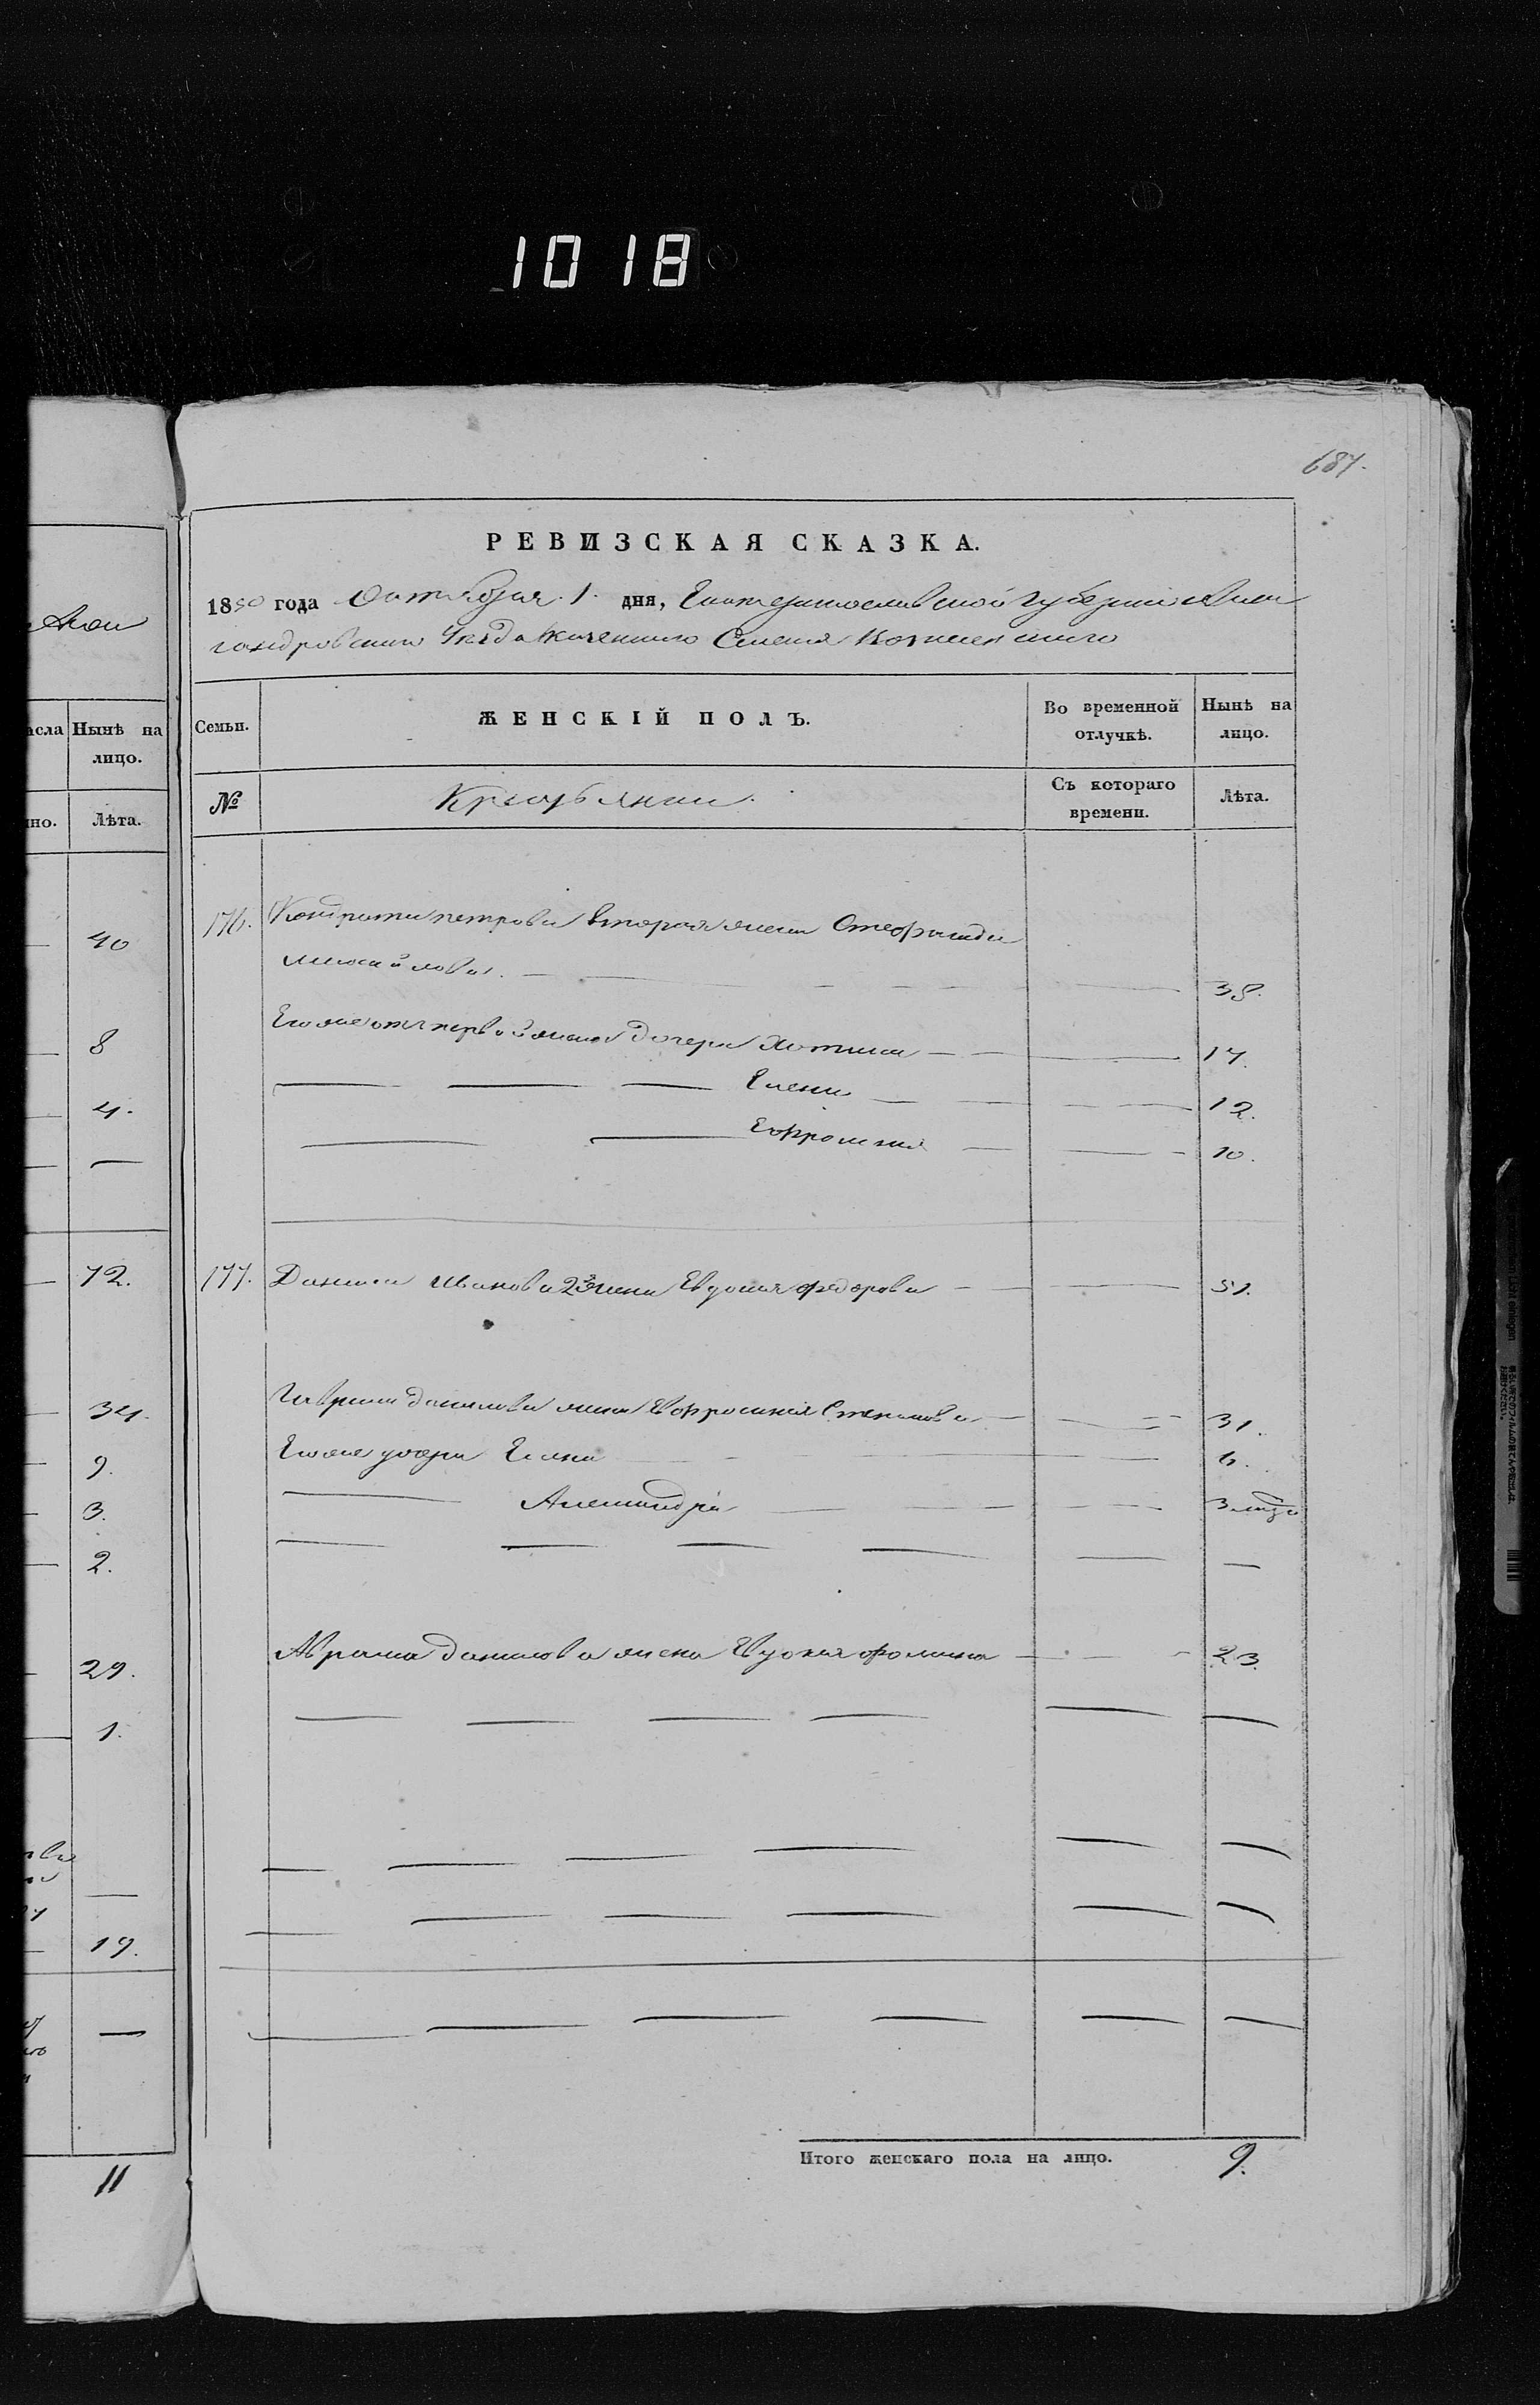 1018
687.
РЕВИЗСКАЯ СКАЗКА.
1850 года Октября 1. дня, Екатеринославской Губернии Алек
сандровского Уѣзда Казеннаго Селенія Вознесенскаго
Семьи.
ЖЕНСКІЙ ПОЛЪ.
Во временной отлучкѣ.
Нынѣ на лицо.
№
Крестьянки.
Съ котораго времени.
Лѣта.
176. Кондратія Петрова вторая жена Стефанида
Михайлова. 38.
Его же отъ первой жены дочери Хотина 17.
Елена 12.
Ефросинія 10.
177. Данила Иванова 2я жена Евдокія Федорова 51.
Гаврила Данилова жена Ефросинія Степанова 31.
Его же дочери Елена 6.
Александра 3 мѣся
Абрама Данилова жена Евдокія Фомина 23.
Итого женскаго пола на лицо. 9.
Нынѣ на лицо.
Лѣта.
40
8
4.
72.
34.
9.
3.
2.
29.
1.
19.
11